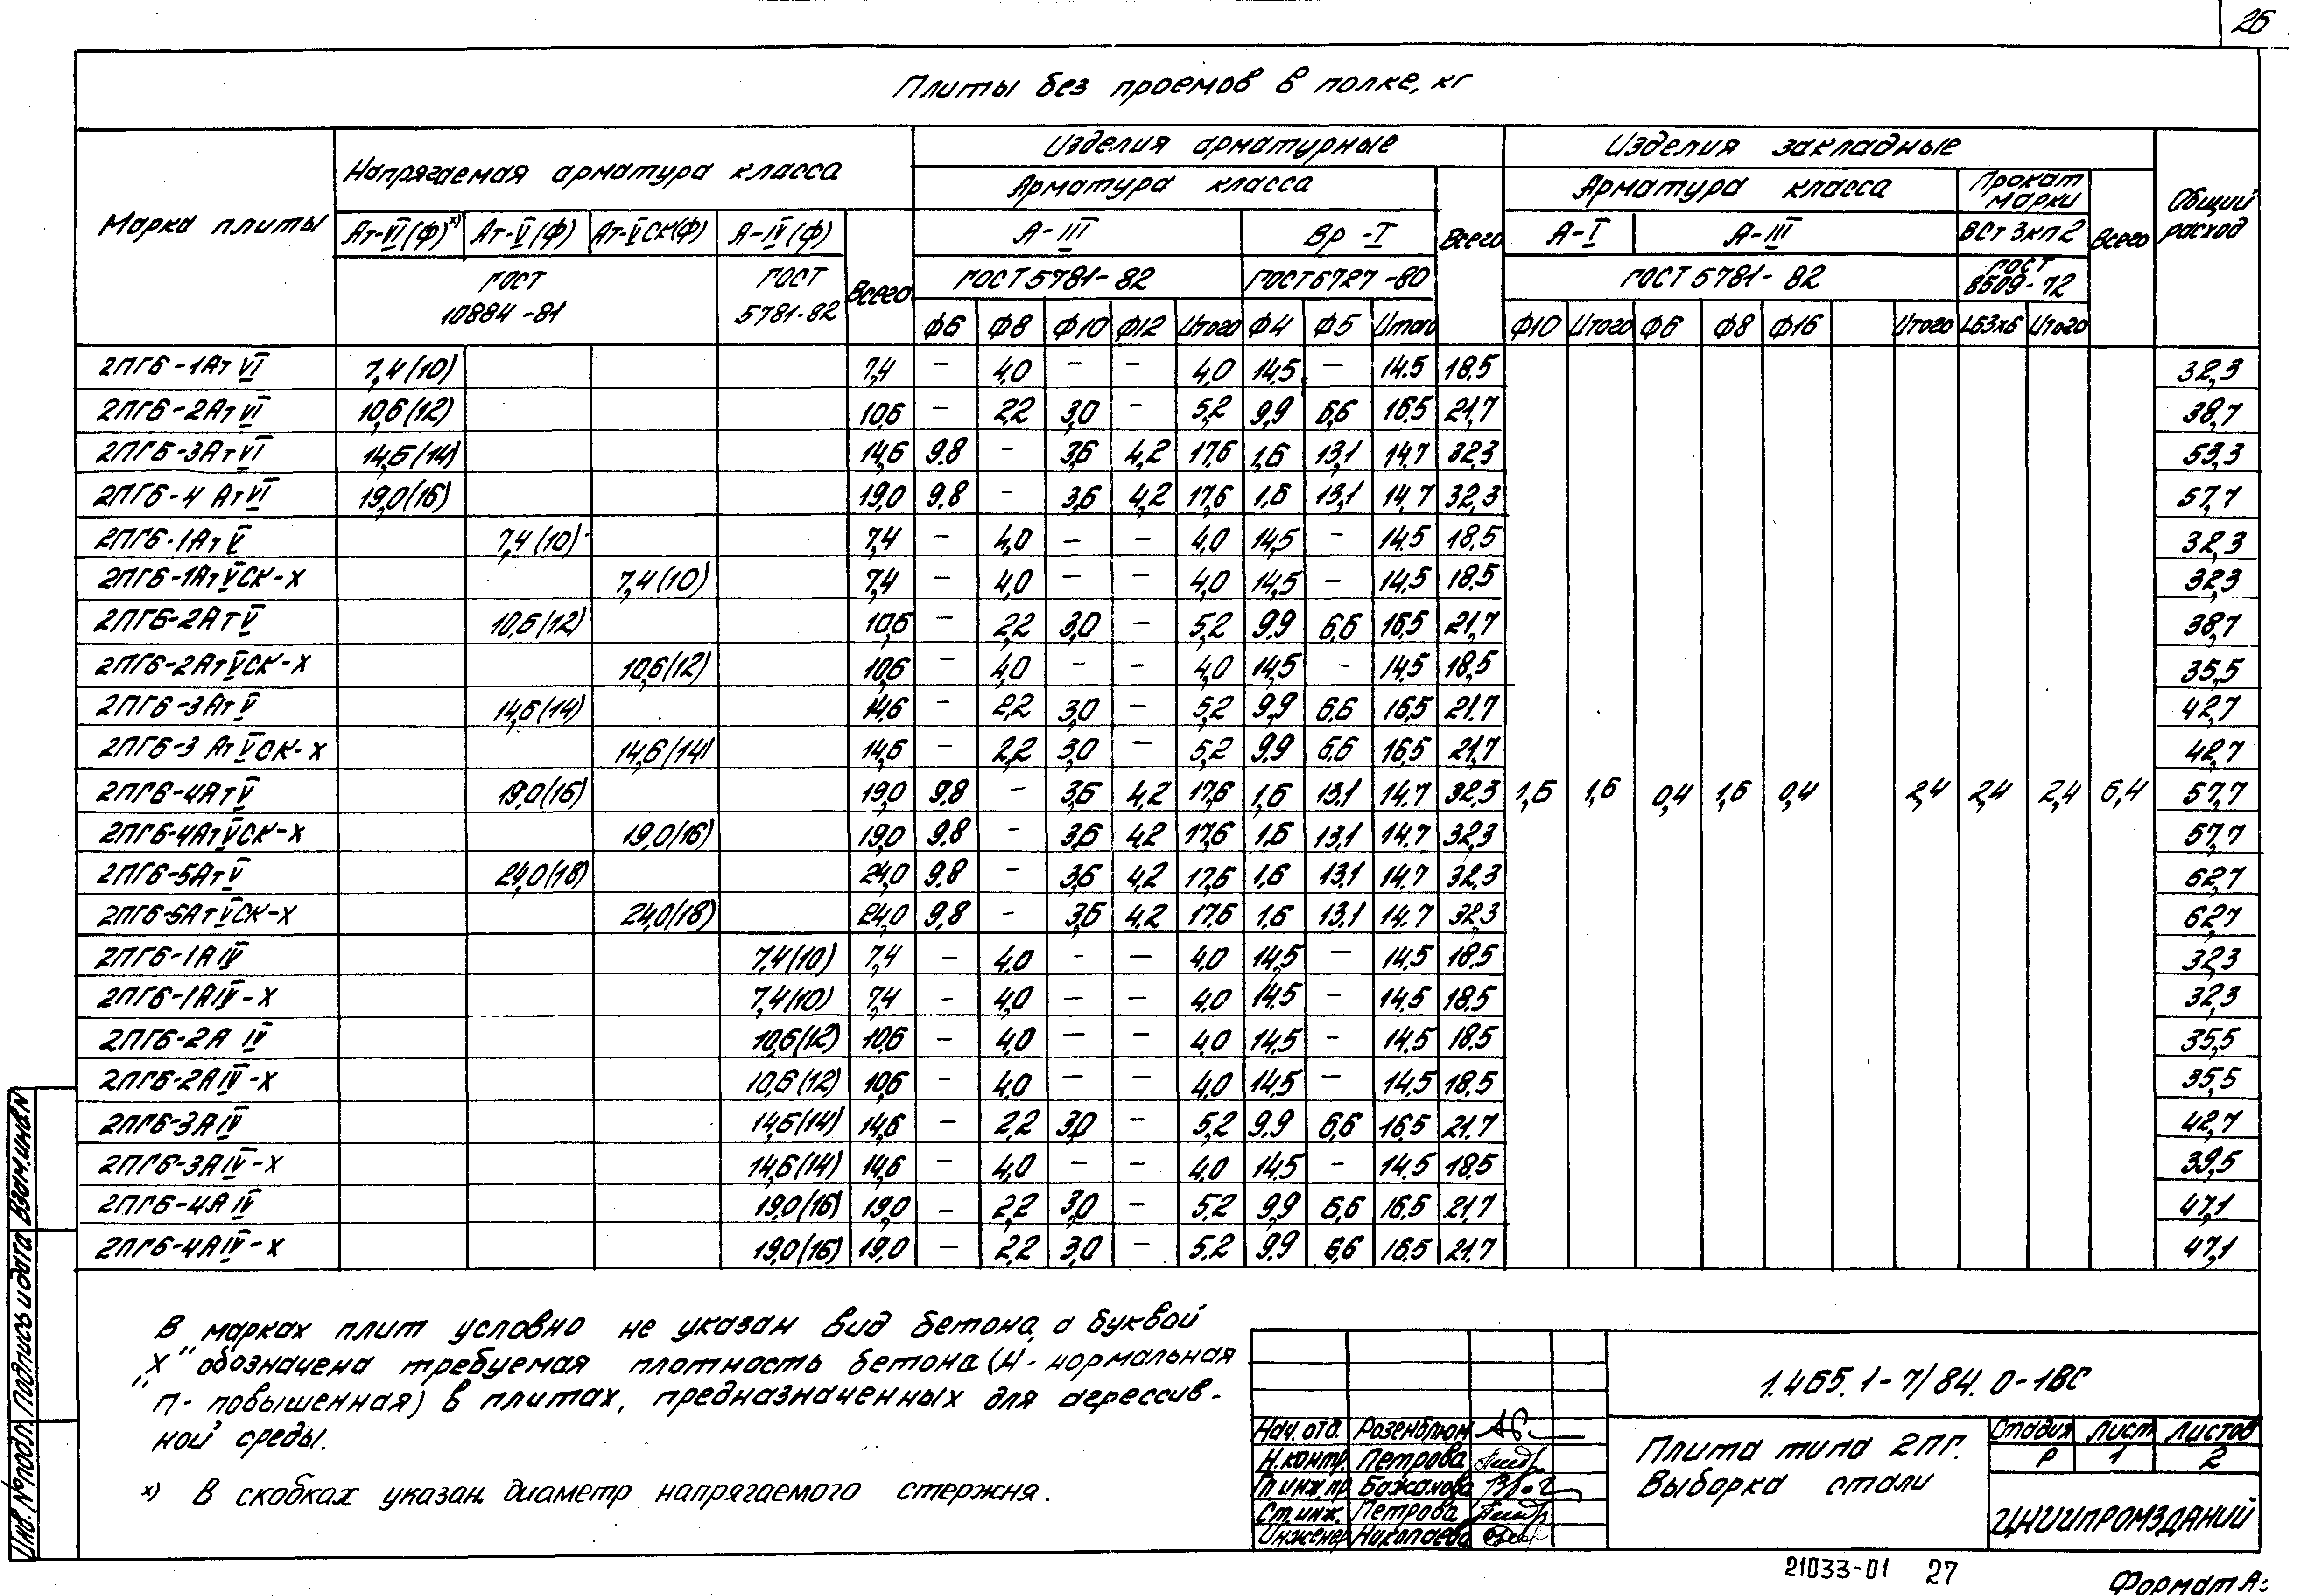 26
Плиты без проемов в полке, кг
Марка плиты
Напрягаемая арматура класса
Изделия арматурные
Изделия закладные
Общий расход
Арматура класса
Всего
Арматура класса
Прокат марки
Всего
Ат-VI(Ф)х) Ат-V(Ф) Ат-VСК(Ф) А-IV(Ф) Всего
А-III Вр-I А-I А-III ВСт3кп2
ГОСТ 10884-81 ГОСТ 5781-82 ГОСТ 5781-82 ГОСТ 6727-80 ГОСТ 5781-82 ГОСТ 8509-72
Ф6 Ф8 Ф10 Ф12 Итого Ф4 Ф5 Итого Ф10 Итого Ф6 Ф8 Ф16 Итого L63х6 Итого
2ПГ6-1АтVI 7,4(10) 7,4 – 4,0 – – 4,0 14,5 – 14.5 18,5 32,3
2ПГ6-2АтVI 10,6(12) 10,6 – 2,2 3,0 – 5,2 9,9 6,6 16,5 21,7 38,7
2ПГ6-3АтVI 14,6(14) 14,6 9.8 – 3,6 4,2 17,6 1,6 13,1 14,7 32,3 53,3
2ПГ6-4 АтVI 19,0(16) 19,0 9,8 – 3,6 4,2 17,6 1,6 13,1 14,7 32,3 57,7
2ПГ6-1АтV 7,4(10) 7,4 – 4,0 – – 4,0 14,5 – 14,5 18,5 32,3
2ПГ6-1АтVСК-Х 7,4(10) 7,4 – 4,0 – – 4,0 14,5 – 14,5 18,5 32,3
2ПГ6-2АтV 10,6(12) 10,6 – 2,2 3,0 – 5,2 9,9 6,6 16,5 21,7 38,7
2ПГ6-2АтVСК-Х 10,6(12) 10,6 – 4,0 – – 4,0 14,5 – 14,5 18,5 35,5
2ПГ6-3АтV 14,6(14) 14,6 – 2,2 3,0 – 5,2 9,9 6,6 16,5 21,7 42,7
2ПГ6-3 АтVСК-Х 14,6(14) 14,6 – 2,2 3,0 – 5,2 9,9 6,6 16,5 21,7 42,7
2ПГ6-4АтV 19,0(16) 19,0 9,8 – 3,6 4,2 17,6 1,6 13,1 14,7 32,3 1,6 1,6 0,4 1,6 0,4 2,4 2,4 2,4 6,4 57,7
2ПГ6-4АтVСК-Х 19,0(16) 19,0 9,8 – 3,6 4,2 17,6 1,6 13,1 14,7 32,3 57,7
2ПГ6-5АтV 24,0(18) 24,0 9,8 – 3,6 4,2 17,6 1,6 13,1 14,7 32,3 62,7
2ПГ6-5АтVСК-Х 24,0(18) 24,0 9,8 – 3,6 4,2 17,6 1,6 13,1 14,7 32,3 62,7
2ПГ6-1АIV 7,4(10) 7,4 – 4,0 – – 4,0 14,5 – 14,5 18,5 32,3
2ПГ6-1АIV-Х 7,4(10) 7,4 – 4,0 – – 4,0 14,5 – 14,5 18,5 32,3
2ПГ6-2А IV 10,6(12) 10,6 – 4,0 – – 4,0 14,5 – 14,5 18,5 35,5
2ПГ6-2АIV-Х 10,6(12) 10,6 – 4,0 – – 4,0 14,5 – 14,5 18,5 35,5
2ПГ6-3АIV 14,6(14) 14,6 – 2,2 3,0 – 5,2 9,9 6,6 16,5 21,7 42,7
2ПГ6-3АIV-Х 14,6(14) 14,6 – 4,0 – – 4,0 14,5 – 14,5 18,5 39,5
2ПГ6-4АIV 19,0(16) 19,0 – 2,2 3,0 – 5,2 9,9 6,6 16,5 21,7 47,1
2ПГ6-4АIV-Х 19,0(16) 19,0 – 2,2 3,0 – 5,2 9,9 6,6 16,5 21,7 47,1
В марках плит условно не указан вид бетона, а буквой
„Х" обозначена требуемая плотность бетона (Н-нормальная
П-повышенная) в плитах, предназначенных для агрессив-
ной среды.
х) В скобках указан диаметр напрягаемого стержня.
1.465.1-7/84.0-1ВС
Нач.отд. Розенблюм
Н.контр. Петрова
Гл.инж.пр. Бажанова
Ст.инж. Петрова
Инженер Николаева
Плита типа 2ПГ.
Выборка стали
Стадия Лист Листов
Р 1 2
ЦНИИПРОМЗДАНИЙ
21033-01 27
Формат А
Инв.№подл. Подпись и дата Взам.инв.N